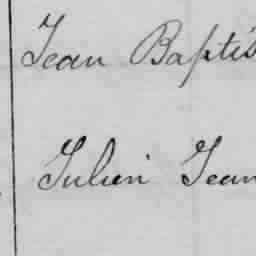 Jean Baptis
Julien Jean